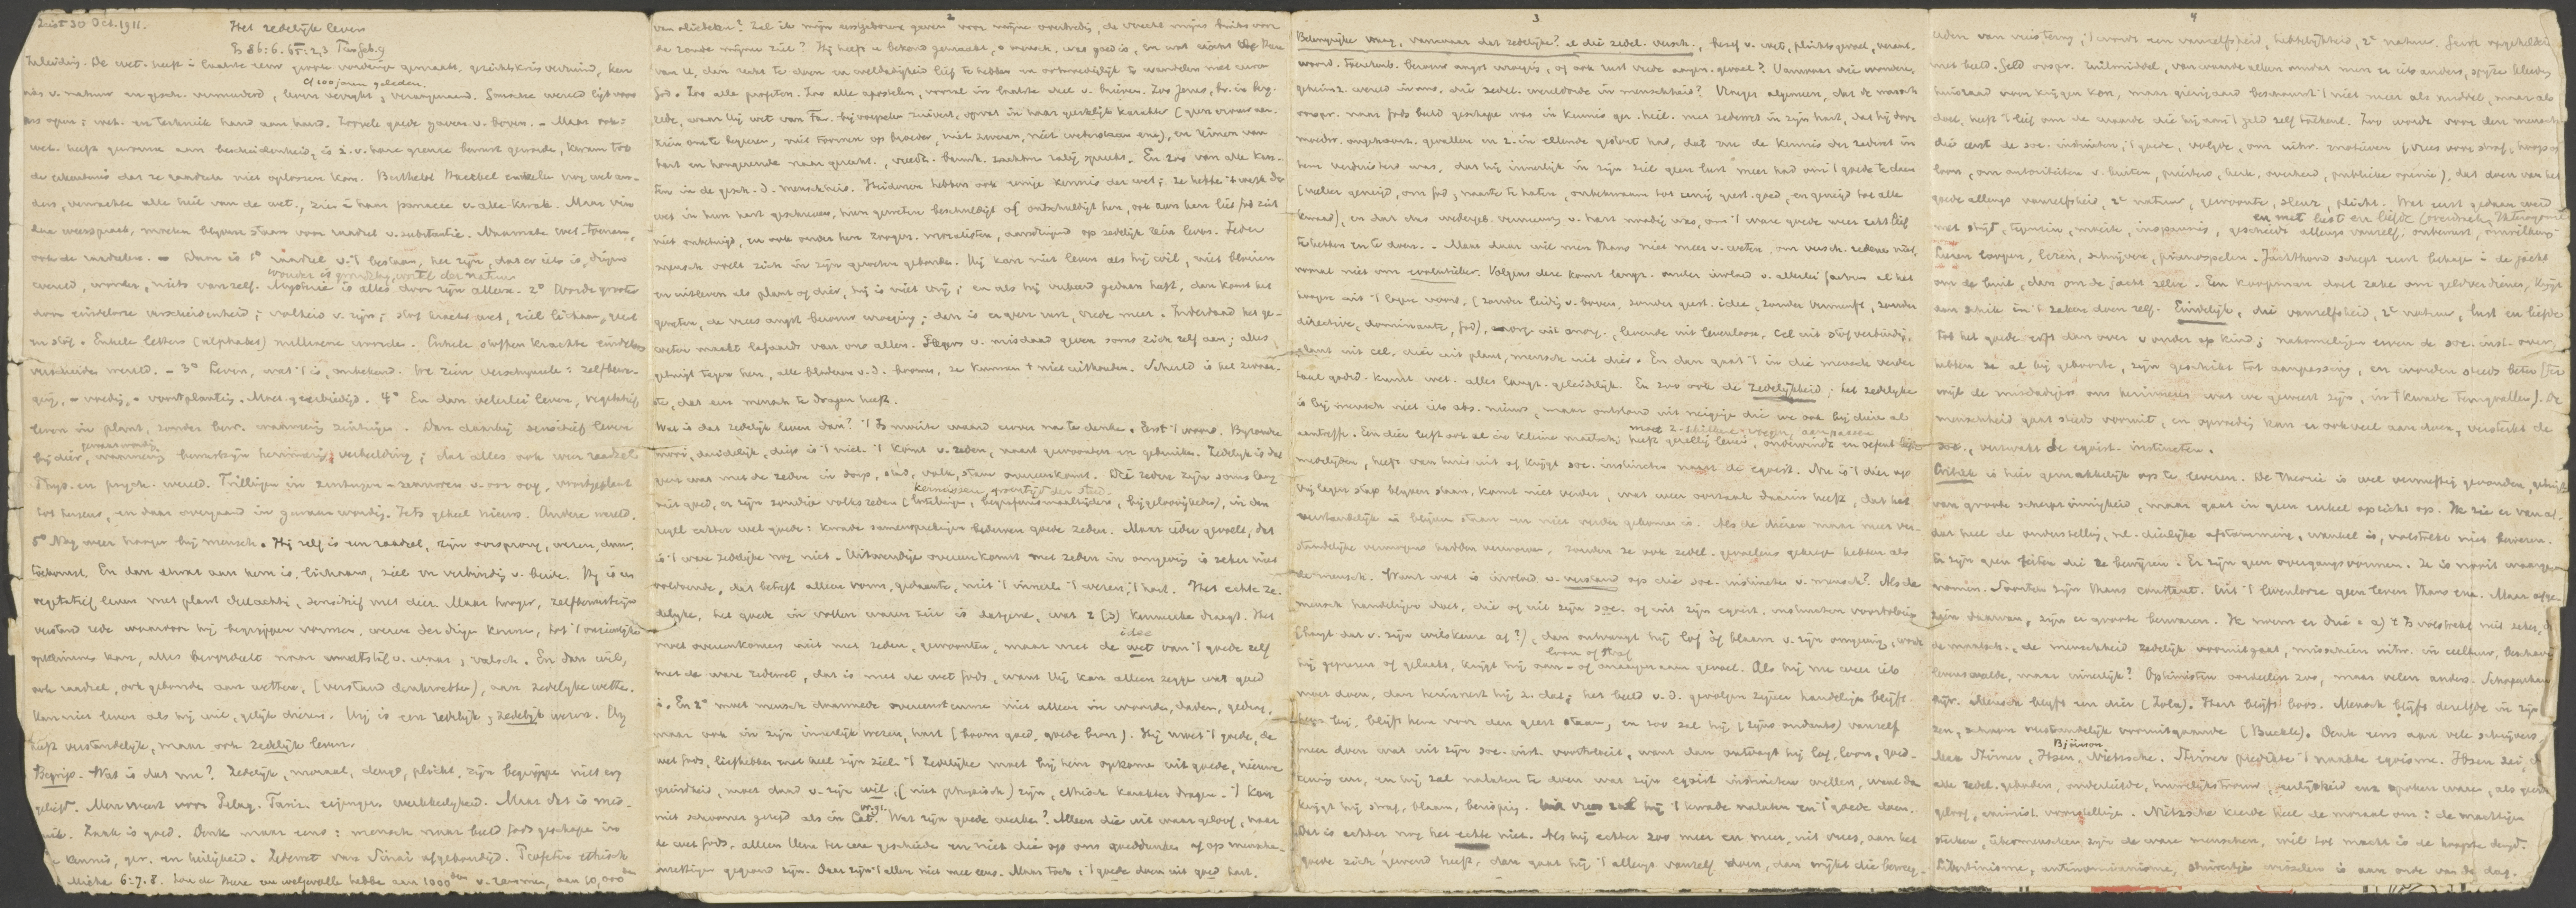 Zeist 30 Oct. 1911.
Het zedelijke leven
Inleiding. De wet. heeft in laatste eeuw groote vorderingen gemaakt, gezichtskring verruimd, ken
of 100 jaren geleden.
nis v. natuur en gesch. vermeerderd, leven verrijkt, veraangenaamd.
ons open; wet. en techniek hand aan hand. Zoovele goede gaven v. boven. - Maar ook:
wet. heeft gewonnen aan bescheidenheid, is z. v. hare grenze bewust geworde, kwam tot
de erkentenis dat ze raadsele niet oplossen kan. Berthelot Haeckel enkelen nog
ders, verwachte alle heil van de wet., zien in haar panacee v. alle kwale. Maar
ook de raadselen. - Daar is 1° raadsel v. 't bestaan, het zijn, dat er iets is,
wereld, wonder, niets van zelf. Mysterie is alles door zijn alleen. 2° Wordt grooter
door eindelooze verscheidenheid; stof kracht wet, ziel lichaam, geest
en stof. Enkele letters (alphabet) millioenen woorde. Enkele stoffen krachte eindeloos
verscheiden wereld. - 3° Leven, wat 't is, onbekend. We zien verschijnsele: zelfbewe-
ging, - voeding, - voortplanting. 4° En dan velerlei leven, vegetatief
leven in plant, zonder bew. Dan daarbij sensitief leven
bij dier, bewustzijn herinnering verbeelding; dat alles ook weer raadsel.
Phys. en psych. wereld. Trillingen in
tot hersens, en daar overgaand in gewaarwording. Iets geheel nieuws. Andere wereld.
5° Nog weer hooger bij mensch. Hij zelf is een raadsel, zijn oorsprong, wezen, doel,
toekomst. En dan alwat aan hem is, lichaam, ziel en verbinding v. beide. Hij is en
vegetatief leven met plant deelachtig, sensitief met dier. Maar hooger, zelfbewustzijn
verstand rede waardoor hij begrippen vormen, wezen der dingen kennen, tot 't onzienlijke
opklimmen kan, alles beoordeelt naar maatstaf v. waar, valsch. En dan wil,
ook raadsel, ook gebonden aan wetten, (verstand denkwetten), aan zedelijke wetten.
Kan niet leven als hij wil, gelijk dieren. Hij is een redelijk, zedelijk wezen. Hij
heeft verstandelijk, maar ook zedelijk leven.
Begrip. Wat is dat nu? Zedelijk, moraal, deugd, plicht, zijn begrippe niet erg
geliefd. Men vreest voor Pelag. Fariz. eigengerechtigheid. Maar dat is mis-
bruik. Zaak is goed. Denk maar eens: mensch naar beeld Gods geschape in
kennis, ger. en heiligheid. Zedewet van Sinai afgekondigd. Profetie ethisch
Micha 6:7.8. Zou de Heere een welgevalle hebbe aan 1000den v. rammen, aan 10,000den
2
van oliebeken? Zal ik mijn eerstgeborene geven voor mijne overtreding, de vrucht mijns buiks voor
de zonde mijner ziel? Hij heeft u bekend gemaakt, o mensch, wat goed is, en wat eischt de Heere
van U, dan recht te doen en weldadigheid lief te hebben en ootmoediglijk te wandelen met uwen
God. Zoo alle profeten. Zoo alle apostelen, vooral in laatste deel v. brieven. Zoo Jezus, bv. in berg-
rede, waar hij wet van Far. bijvoegselen zuivert, opvat in haar geestelijk karakter (geen vrouw aan-
zien om te begeeren, niet toornen op broeder, niet zweren, niet wederstaan enz), en reinen van
hart en hongerende naar gerecht., vreedz. barmh. zachtm. zalig spreekt. En zoo van alle kan-
ten in de gesch. d. menschheid. Heidenen hebben ook eenige kennis der wet; ze hebbe 't werk der
wet in hun hart geschreven, hun geweten beschuldigt of ontschuldigt hen, ook aan hen liet God zich
niet onbetuigd, en ook onder hen zijn moralisten, aandringend op zedelijk rein leven. Ieder
mensch voelt zich in zijn geweten gebonden. Hij kan niet leven als hij wil, niet bloeien
en uitleven als plant of dier, hij is niet vrij; en als hij verkeerd gedaan heeft, dan komt het
geweten, de vrees angst berouw wroeging; dan is er geen rust, vrede meer. Inderdaad het ge-
weten maakt lafaards van ons allen. Plegers v. misdaad geven soms zich zelf aan; alles
getuigt tegen hen, alle bladeren v. d. boomen, ze kunnen 't niet uithouden. Schuld is het zwaar-
ste, dat een mensch te dragen heeft.
Wat is dat zedelijk leven dan? 't Is moeite waard erover na te denken. Eerst 't woord. Bijzonder
mooi, duidelijk, diep is 't niet. 't Komt v. zeden, naast gewoonten en gebruiken. Zedelijk is dat
geen wat met de zeden in dorp, stad, volk, stam overeenkomt. Die zeden zijn soms lang
niet goed, er zijn zondige volkszeden (begrafenismaaltijden, bijgeloovigheden), in den
regel echter wel goede: kwade samensprekingen bederven goede zeden. Maar ieder gevoelt, dat
is 't ware zedelijke nog niet. Uitwendige overeenkomst met zeden in omgeving is zeker niet
voldoende, dat betreft alleen vorm, gedaante, niet 't innerl. 't wezen, 't hart. Het echte ze-
delijke, het goede in vollen waren zin is datgene, wat 2 (3) kenmerke draagt. Het
moet overeenkomen niet met zeden, gewoonten, maar met de idee wet van 't goede zelf
met de ware zedewet, dat is met de wet Gods, want Hij kan alleen zegge wat goed
is. En 2° moet mensch daarmede overeenstemme niet alleen in woorde, daden, gedrag,
maar ook in zijn innerlijk wezen, hart (boom goed, goede bron). Hij moet 't goede, de
wet Gods, liefhebben met heel zijn ziel. 't Zedelijke moet bij hem opkome uit goede, nieuwe
gezindheid, moet daad v. zijn wil, (niet physisch) zijn, ethisch karakter dragen. - 't Kan
niet schooner gezegd als in Cat. Wat zijn goede werke? Alleen die uit waar geloof, naar
de wet Gods, alleen Hem ter eere geschieden en niet die op ons goeddunke of op mensche-
inzettingen gegrond zijn. Daar zijn 't allen niet mee eens. Maar toch: 't goede doen uit goed hart.
3
Belangrijke vraag, vanwaar dat zedelijke? al die zedel. versch., besef v. wet, plichtsgevoel, verant-
woord. toerekenb. berouw angst wroeging, of ook rust vrede aangen. gevoel? Vanwaar die wondere,
geheimz. wereld in ons, die zedel. wereldorde in menschheid? Vroeger algemeen, dat de mensch
oorspr. naar Gods beeld geschape was in kennis ger. heil. met zedewet in zijn hart, dat hij door
moedw. ongehoorz. gevallen en z. in ellende gestort had, dat nu de kennis der zedewet in
hem verduisterd was, dat hij innerlijk in zijn ziel geen lust meer had om 't goede te doen
(veeleer geneigd, om God, naaste te haten, onbekwaam tot eenig geest. goed, en geneigd tot alle
kwaad), en dat dus wedergeb. vernieuwing v. hart noodig was, om 't ware goede weer recht lief
te hebben en te doen. - Maar daar wil men thans niet meer v. weten, om versch. redene niet,
vooral niet om evolutieleer. Volgens deze komt langz. onder invloed v. allerlei factoren al het
hoogere uit 't lagere voort, (zonder leiding v. boven, zonder geest. idee, zonder vernunft, zonder
directive, dominante, God), org. uit anorg., levende uit levenlooze, cel uit stofverbinding,
plant uit cel, dier uit plant, mensch uit dier. En dan gaat 't in die mensch verder
taal godsd. kunst wet. alles langz. geleidelijk. En zoo ook de zedelijkheid; het zedelijke
is bij mensch niet iets abs. nieuws, maar ontstaan uit neiginge die we ook bij dieren al
aantreffe. Een dier leeft ook al in kleine maatsch., heeft gezellig leven, ondervindt en oefent
medelijden, heeft van huis uit of krijgt soc. instincten naast de egoist. Nu is 't dier op
dien lagen trap blijven staan, komt niet verder, wat weer oorzaak daarin heeft, dat het
verstandelijk is blijven staan en niet verder gekomen is. Als de dieren maar meer ver-
standelijke vermogens hadden verworven, zouden ze ook zedel. gevoelens gekrege hebben als
de mensch. Want wat is invloed v. verstand op die soc. instincten v. mensch? Als de
mensch handelinge doet, die of uit zijn soc. of uit zijn egoist. instincten voortvloeien
(hangt dat v. zijn willekeur af?), dan ontvangt hij lof of blaam v. zijn omgeving, wordt
loon of straf
hij geprezen of gelaakt, krijgt hij aan- of onaangenaam gevoel. Als hij nu weer iets
moet doen, dan herinnert hij z. dat; het beeld v. d. gevolgen zijner handelinge blijft
bij, blijft hem voor den geest staan; en zoo zal hij (zijns ondanks) vanzelf
meer doen wat uit zijn soc. inst. voortvloeit, want dan ontvangt hij lof, loon, goed-
keuring enz, en hij zal nalaten te doen wat zijn egoist instincten willen, want dan
krijgt hij straf, blaam, berisping. Uit vrees zal hij 't kwade nalaten en 't goede doen.
Dat is echter nog het echte niet. Als hij echter zoo meer en meer, uit vrees, aan het
goede zich gewend heeft, dan gaat hij 't allengs vanzelf doen, dan wijkt die beweeg-
4
met geld. Geld oorspr. ruilmiddel, van waarde alleen omdat men er iets anders, spijze kleeding
huisraad voor krijgen kon, maar gierigaard beschouwt 't niet meer als middel, maar als
doel, heeft 't lief om de waarde die hij aan 't geld zelf toekent. Zoo wordt voor den mensch
die eerst de soc. instincten, 't goede, volgde, om uitw. motieven (vrees voor straf, hoop op
loon, om autoriteiten v. buiten, priesters, kerk, overheid, publieke opinie), dat doen van het
goede allengs vanzelfheid, 2e natuur, gewoonte, sleur, plicht. Wat eerst gedaan werd
en met lust en liefde
met strijd, tegenzin, moeite, inspanning, geschiedt allengs vanzelf, onbewust, onwillekeur.
Leeren loopen, lezen, schrijven, pianospelen. Jachthond schept eerst behage in de jacht
om de buit, dan om de jacht zelve. Een koopman doet zaken om geldverdienen, krijgt
dan schik in 't zaken doen zelf. Eindelijk, die vanzelfheid, 2e natuur, lust en liefde
tot het goede erft dan over v. ouder op kind; nakomelingen erven de soc. inst. over,
hebben ze al bij geboorte, zijn geschikt tot aanpassing, en worden steeds beter (ter-
wijl de misdadigers ons herinneren wat we geweest zijn, in 't kwade terugvallen). De
menschheid gaat steeds vooruit, en opvoeding kan er ook veel aan doen, versterkt de
soc., verzwakt de egoist. instincten.
Critiek is hier gemakkelijk op te leveren. De theorie is wel vernuftig gevonden, getuigt
van groote scherpzinnigheid, maar gaat in geen enkel opzicht op. Ik zie er van af,
dat heel de onderstelling, nl. dierlijke afstamming, wankel is, volstrekt niet bewezen.
Er zijn geen feiten die ze bewijzen. Er zijn geen overgangsvormen. Ze is nooit waarge-
nomen. Soorten zijn thans constant. Uit 't levenlooze geen leven thans enz. Maar afge-
zien daarvan, zijn er groote bezwaren. Ik noem er drie: a) 't Is volstrekt niet zeker, dat
de maatsch., de menschheid zedelijk vooruitgaat, misschien uitw. in cultuur, beschaving
levenswelde, maar innerlijk? Optimisten oordeelen zoo, maar velen anders. Schopenhauer
Mensch blijft een dier (Zola). Hart blijft boos. Mensch blijft dezelfde in zijn
schoon verstandelijk vooruitgaande (Buckle). Denk eens aan vele schrijvers
Björnson
Stirner, Ibsen, Nietzsche. Stirner predikte 't naakte egoisme. Ibsen zei, dat
alle zedel. geboden, ouderliefde, huwelijkstrouw, eerlijkheid enz spoken ware, als geen
geloof, voorstellinge. Nietzsche keerde heel de moraal om: de machtige
sterken, übermenschen zijn de ware menschen, wil tot macht is de hoogste deugd.
Libertinisme, antinomianisme, is aan orde van de dag.